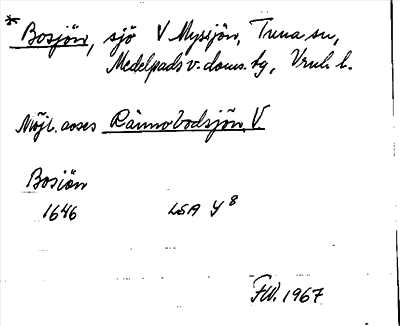 * Bosjön, sjö V Myssjön, Tuna sn,
Medelpads v. doms. hg, Vrnl. l.
Möjl. avses Rännobodsjön, V
Bosiön
1646 LSA Y 8
FW. 1967